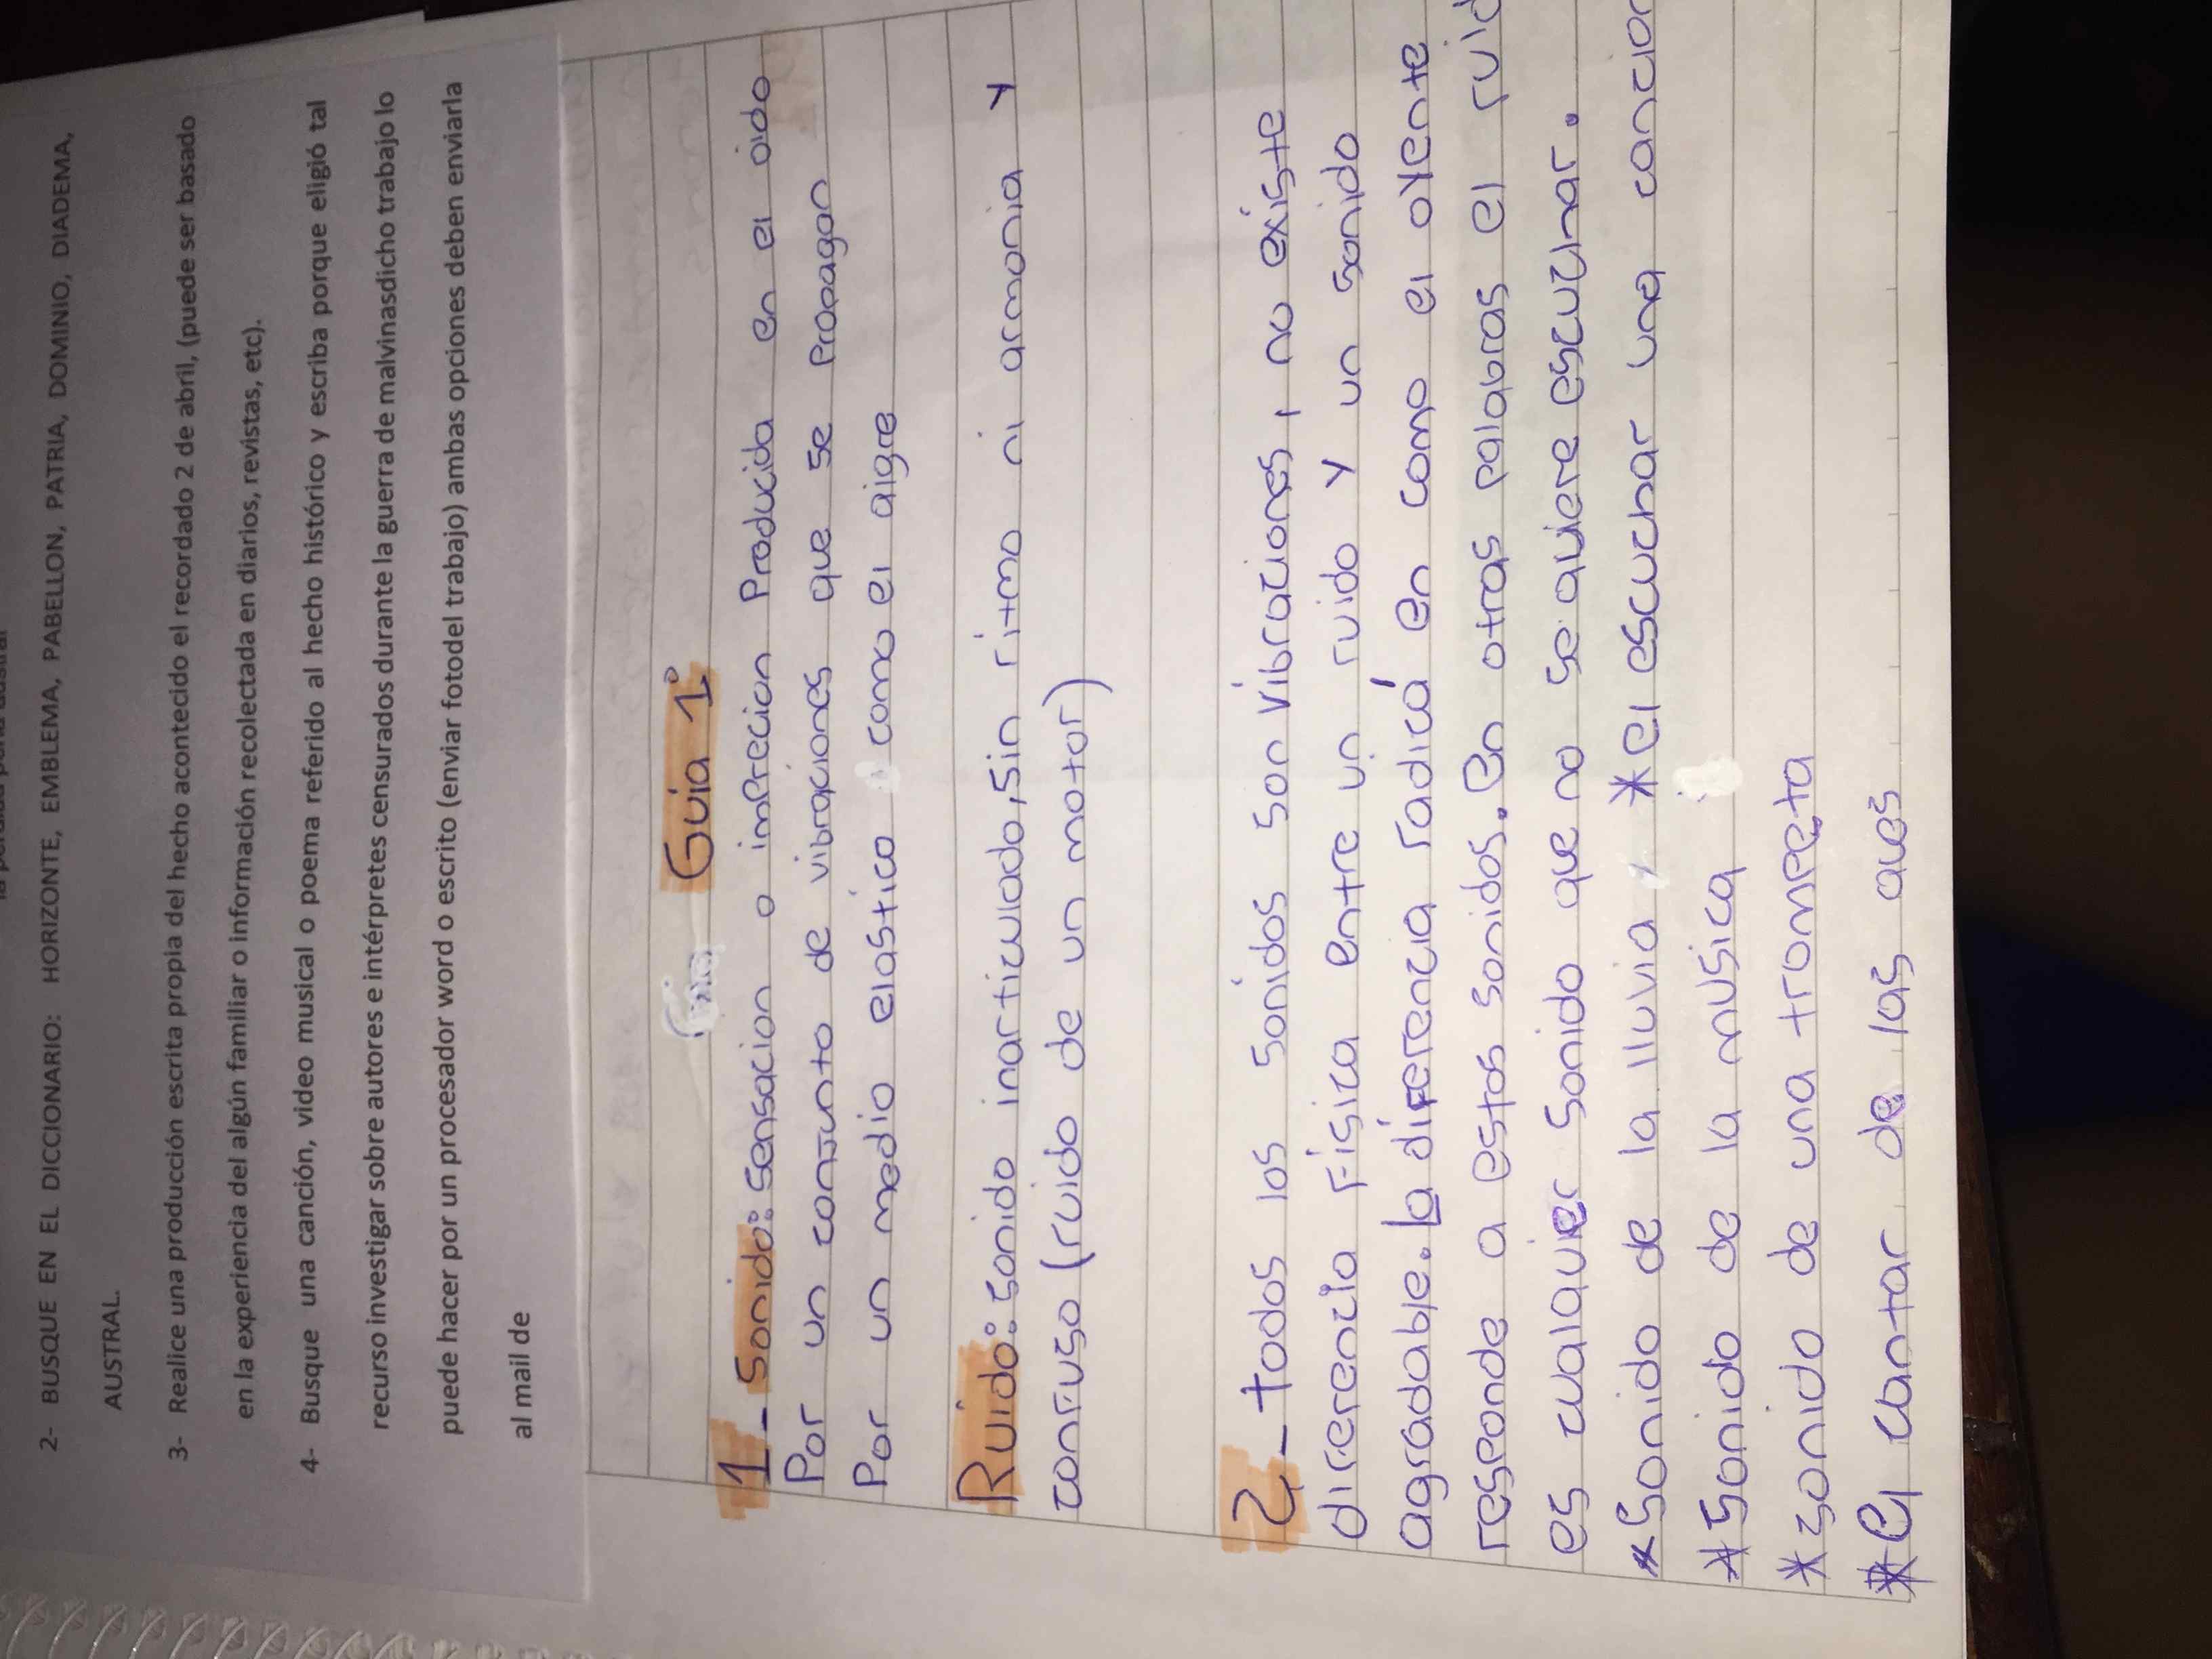 2- BUSQUE EN EL DICCIONARIO: HORIZONTE, EMBLEMA, PABELLON, PATRIA, DOMINIO, DIADEMA,
AUSTRAL.
3- Realice una producción escrita propia del hecho acontecido el recordado 2 de abril, (puede ser basado
en la experiencia del algún familiar o información recolectada en diarios, revistas, etc).
4- Busque una canción, video musical o poema referido al hecho histórico y escriba porque eligió tal
recurso investigar sobre autores e intérpretes censurados durante la guerra de malvinasdicho trabajo lo
puede hacer por un procesador word o escrito (enviar fotodel trabajo) ambas opciones deben enviarla
al mail de
Guia 1°
1_ Sonido: Sensacion o imprecion Producida en el oido
Por un conjunto de vibraciones que se Propagan
Por un medio elastico como el aigre
Ruido: sonido inarticulado, sin ritmo ni armonia y
confuso (ruido de un motor)
2_ todos los sonidos son vibraciones, no existe
diferencia Física entre un ruido y un sonido
agradable. la diferencia radica en como el oyente
responde a estos sonidos. en otras palabras el ruid
es cualquier sonido que no se quiere escuchar.
*sonido de la lluvia *el escuchar una cancion
*sonido de la musica
*sonido de una trompeta
*el cantar de las aves